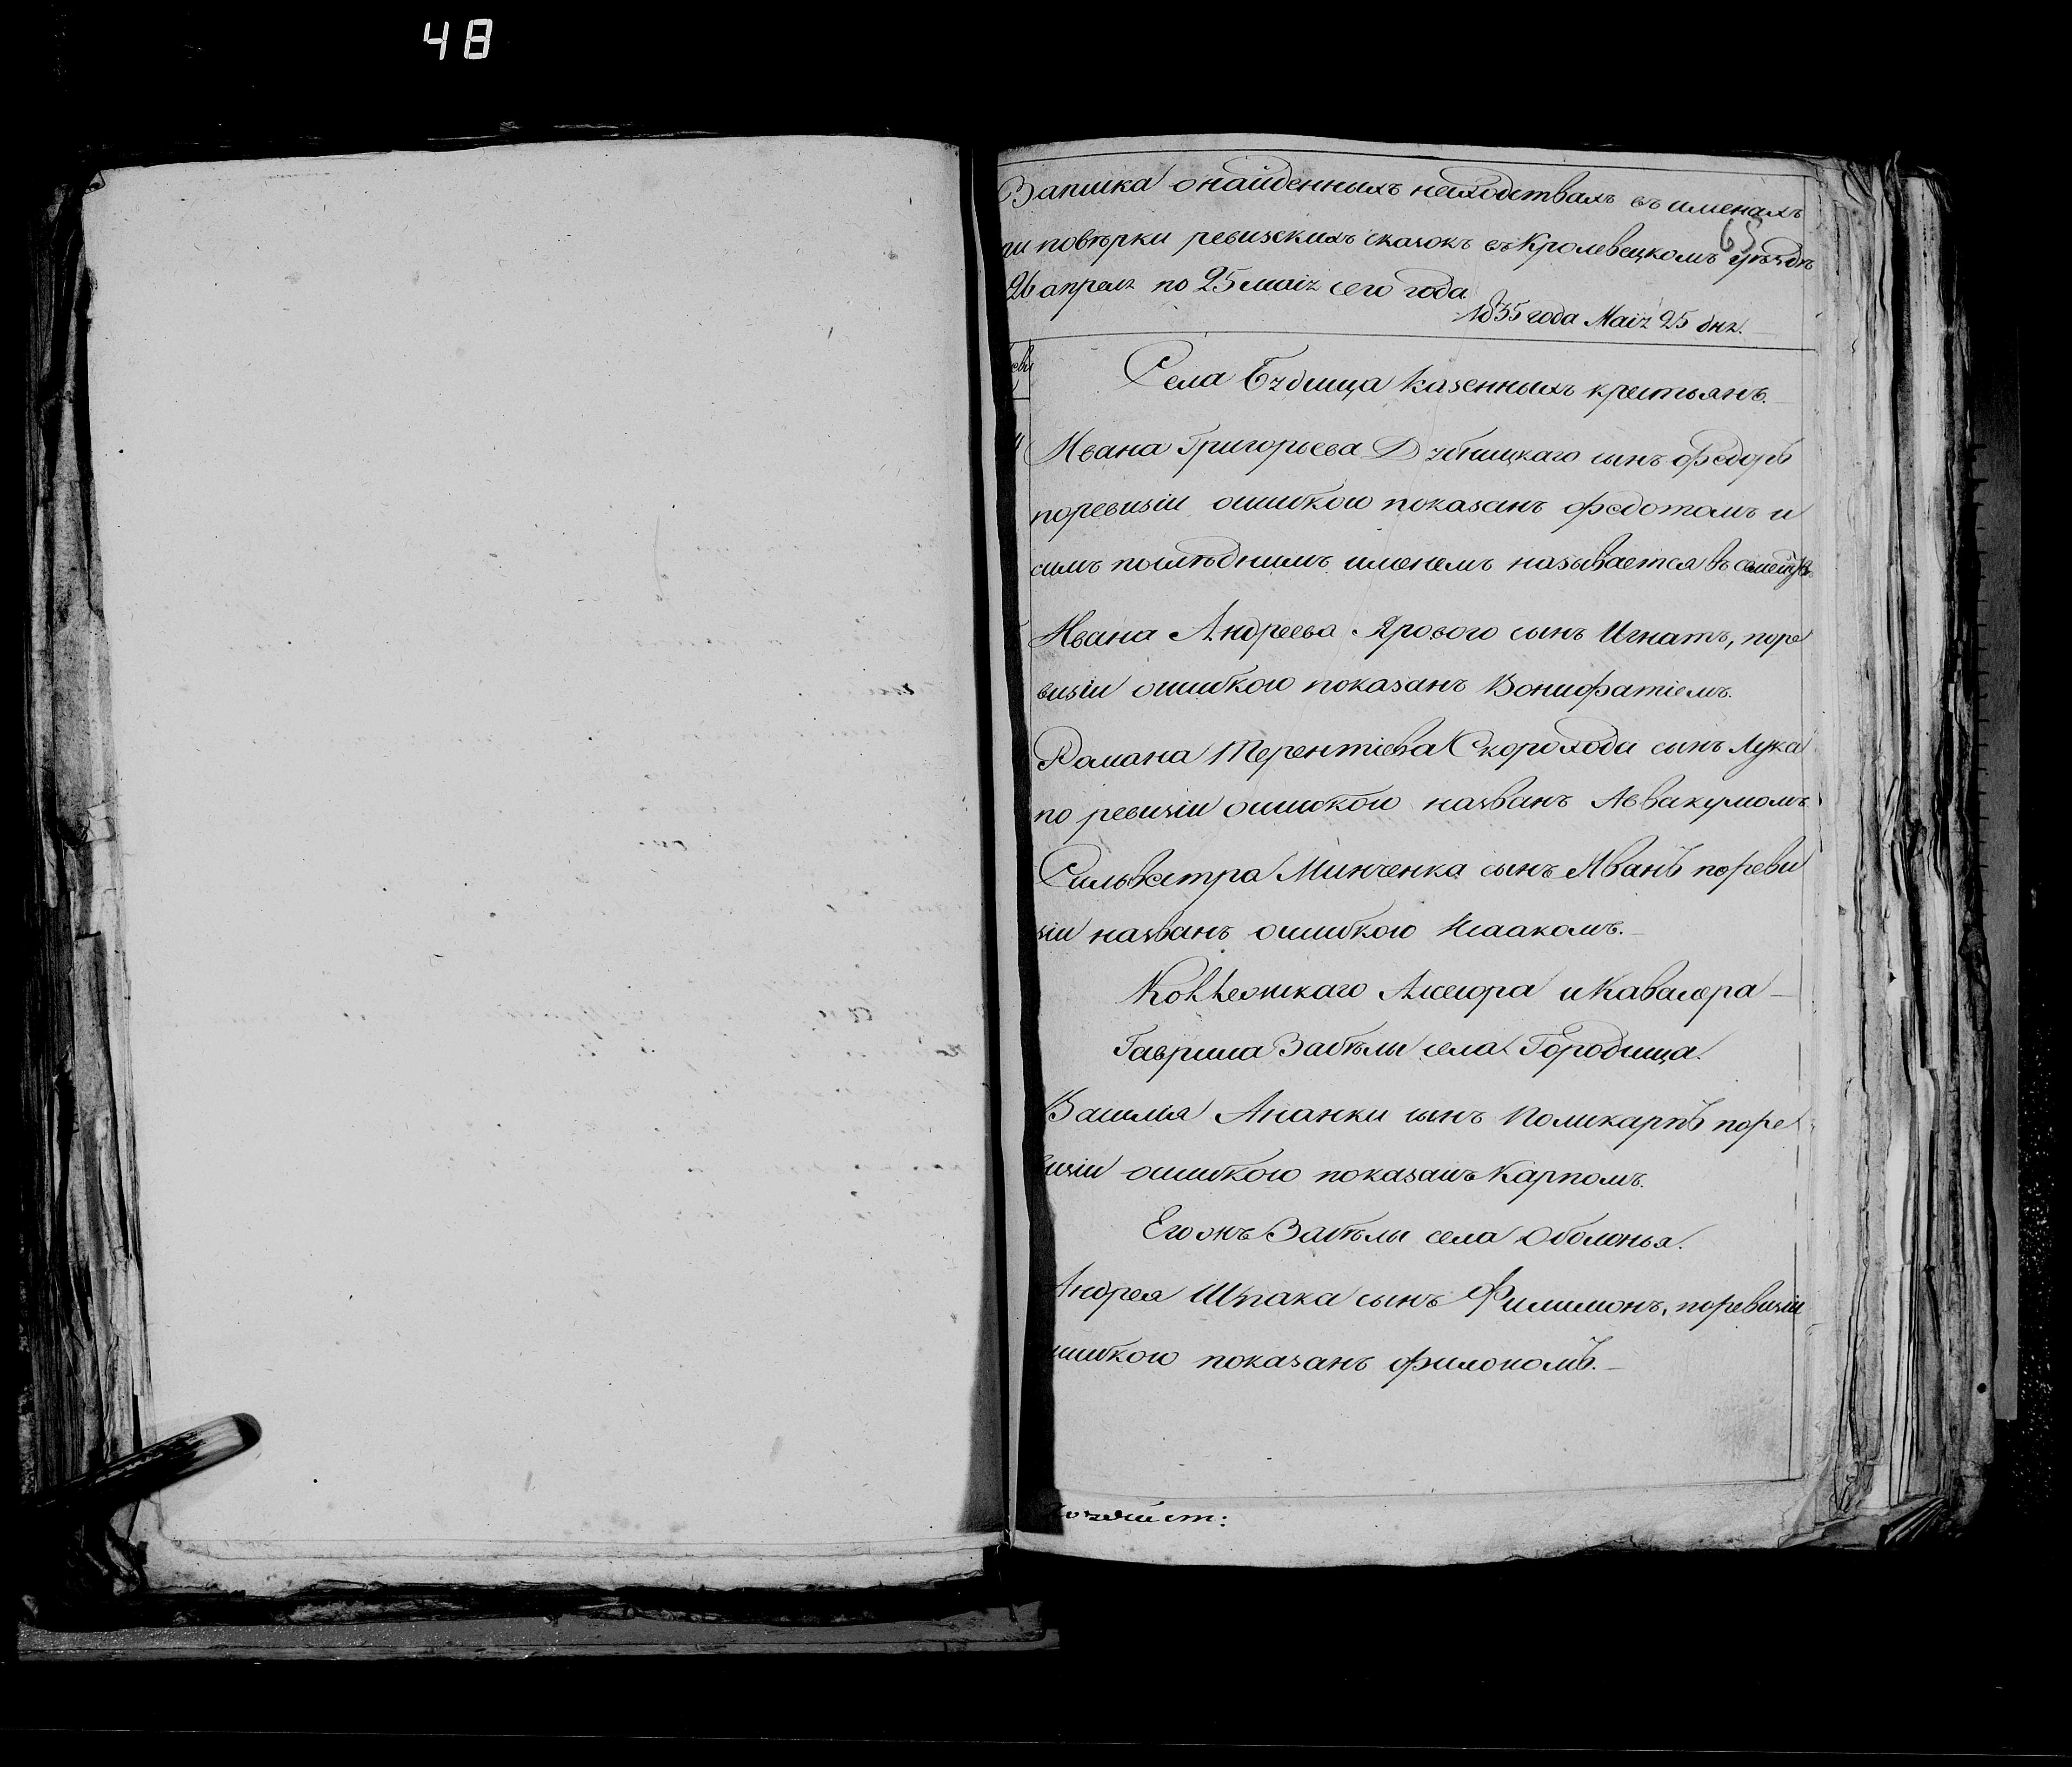 48
Записка онайденныхъ несходствахъ въ именахъ
ри повѣрки ревизскихъ сказокъ въ Кролевецкомъ уѣздѣ
65
26 апреля по 25 маія сего года
1835 года Маія 25 дня.
Села Будища казенныхъ крестьянъ.
Ивана Григорьева сынъ Федоръ
поревизіи ошибкою показанъ Федотомъ и
симъ послѣднимъ именемъ называется въ семействѣ
Ивана Андреева Яроваго сынъ Игнатъ, поре
визіи ошибкою показанъ Вонифатіемъ.
Романа Терентіева Скорохода сынъ Лука
по ревизіи ошибкою названъ Аввакумомъ
Сильвестра Минченка сынъ Иванъ пореви
зіи названъ ошибкою Исаакомъ.
Коллежскаго Ассесора и Кавалера
Гаврила Забѣлы села Городища.
Василія Ананки сынъ Поликарпъ поре
визіи ошибкою показанъ Карпомъ.
Его жъ Забѣлы села Оболонья.
Андрея Шпака сынъ Филимонъ, поревизіи
шибкою показанъ Филономъ.